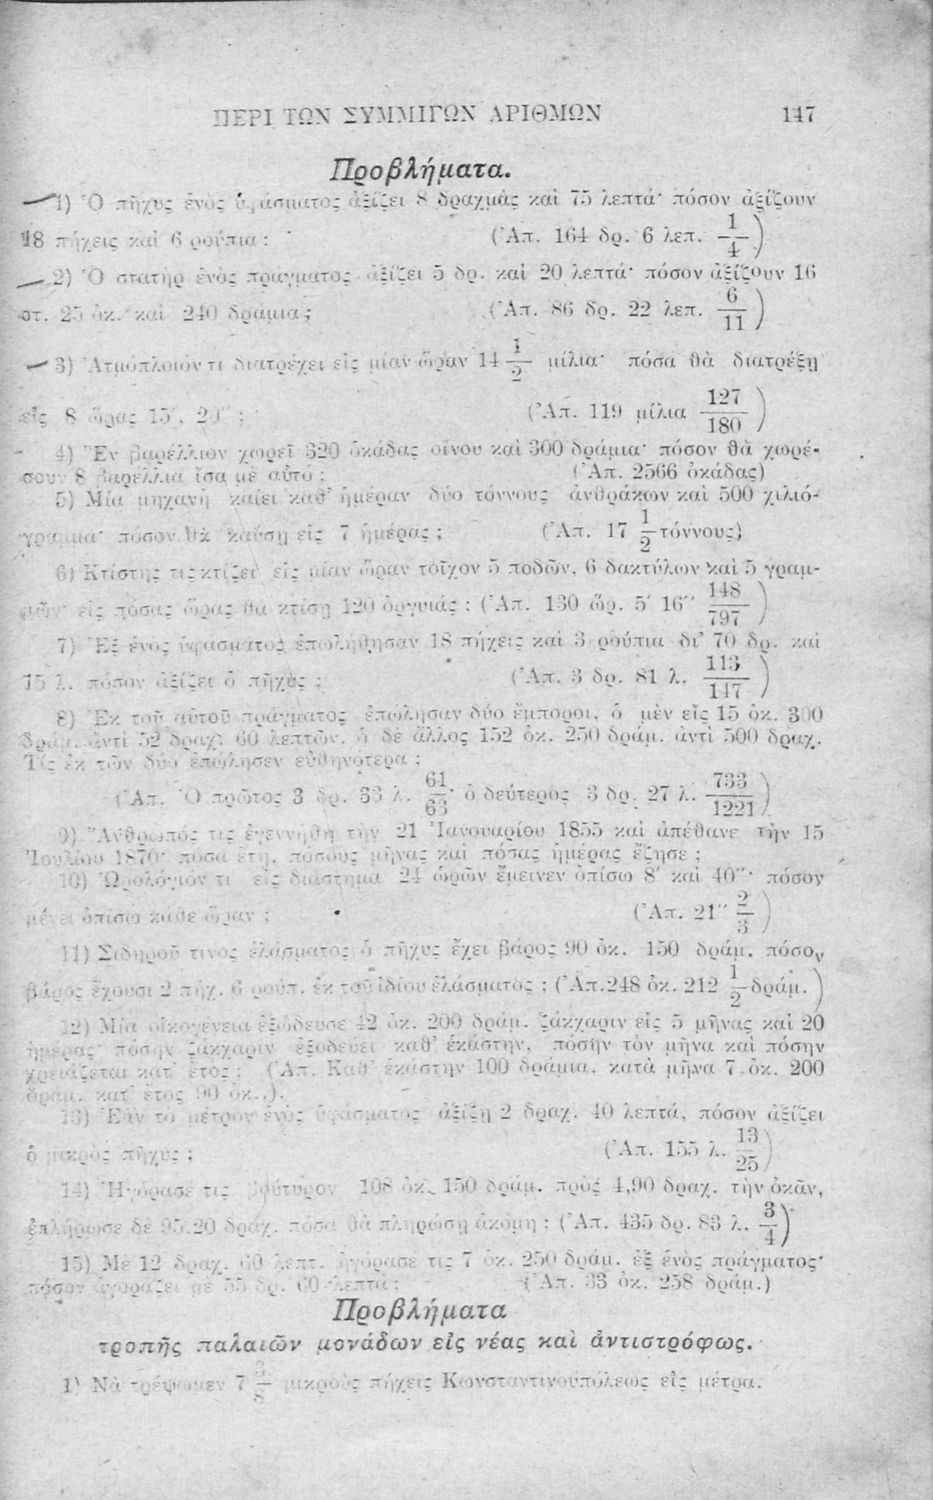 ΠΕΡΙ ΤΩΝ ΣΥΜΜΙΓΩΝ ΑΡΙΘΜΩΝ 147
Προβλήματα.
1) Ὁ πῆχυς ἑνὸς ὑφάσματος ἀξίζει 8 δραχμὰς καὶ 75 λεπτά· πόσον ἀξίζουν
18 πήχεις καὶ 6 ρούπια; (Ἀπ. 164 δρ. 6 λεπ. 1/4)
2) Ὁ στατὴρ ἑνὸς πράγματος ἀξίζει 5 δρ. καὶ 20 λεπτά· πόσον ἀξίζουν 16
στ. 25 ὀκ. καὶ 240 δράμια; (Ἀπ. 86 δρ. 22 λεπ. 6/11)
3) Ἀτμόπλοιόν τι διατρέχει εἰς μίαν ὥραν 14 1/2 μίλια· πόσα θὰ διατρέξῃ
εἰς 8 ὥρας 15′, 20″; (Ἀπ. 119 μίλια 127/180)
4) Ἓν βαρέλλιον χωρεῖ 320 ὀκάδας οἴνου καὶ 300 δράμια· πόσον θὰ χωρέ-
σουν 8 βαρέλλια ἴσα μὲ αὐτό; (Ἀπ. 2566 ὀκάδας)
5) Μία μηχανὴ καίει καθ' ἡμέραν δύο τόννους ἀνθράκων καὶ 500 χιλιό-
γραμμα· πόσον θὰ καύσῃ εἰς 7 ἡμέρας; (Ἀπ. 17 1/2 τόννους)
6) Κτίστης τις κτίζει εἰς μίαν ὥραν τοῖχον 5 ποδῶν, 6 δακτύλων καὶ 5 γραμ-
μῶν· εἰς πόσας ὥρας θὰ κτίσῃ 120 ὀργυιάς; (Ἀπ. 130 ὥρ. 5′ 16″ 148/797)
7) Ἐξ ἑνὸς ὑφάσματος ἐπωλήθησαν 18 πήχεις καὶ 3 ρούπια δι' 70 δρ. καὶ
15 λ. πόσον ἀξίζει ὁ πῆχυς; (Ἀπ. 3 δρ. 81 λ. 113/147)
8) Ἐκ τοῦ αὐτοῦ πράγματος ἐπώλησαν δύο ἔμποροι, ὁ μὲν εἷς 15 ὀκ. 300
δράμ. ἀντὶ 52 δραχ. 60 λεπτῶν, ὁ δὲ ἄλλος 152 ὀκ. 250 δράμ. ἀντὶ 500 δραχ.
Τίς ἐκ τῶν δύο ἐπώλησεν εὐθηνότερα;
(Ἀπ. Ὁ πρῶτος 3 δρ. 33 λ. 61/63· ὁ δεύτερος 3 δρ. 27 λ. 733/1221)
9) Ἄνθρωπός τις ἐγεννήθη τὴν 21 Ἰανουαρίου 1855 καὶ ἀπέθανε τὴν 15
Ἰουλίου 1870· πόσα ἔτη, πόσους μῆνας καὶ πόσας ἡμέρας ἔζησε;
10) Ὡρολόγιόν τι εἰς διάστημα 24 ὡρῶν ἔμεινεν ὀπίσω 8′ καὶ 40″· πόσον
μένει ὀπίσω κάθε ὥραν; (Ἀπ. 21″ 2/3)
11) Σιδηροῦ τινος ἐλάσματος ὁ πῆχυς ἔχει βάρος 90 ὀκ. 150 δράμ. πόσον
βάρος ἔχουσι 2 πήχ. 6 ρούπ. ἐκ τοῦ ἰδίου ἐλάσματος; (Ἀπ. 248 ὀκ. 212 1/2 δράμ.)
12) Μία οἰκογένεια ἐξώδευσε 42 ὀκ. 200 δράμ. ζάκχαριν εἰς 5 μῆνας καὶ 20
ἡμέρας· πόσην ζάκχαριν ἐξοδεύει καθ' ἑκάστην, πόσην τὸν μῆνα καὶ πόσην
χρειάζεται κατ' ἔτος; (Ἀπ. Καθ' ἑκάστην 100 δράμια, κατὰ μῆνα 7 ὀκ. 200
δράμ. κατ' ἔτος 90 ὀκ..).
13) Ἐὰν τὸ μέτρον ἑνὸς ὑφάσματος ἀξίζῃ 2 δραχ. 40 λεπτά, πόσον ἀξίζει
ὁ μικρὸς πῆχυς; (Ἀπ. 155 λ. 13/25)
14) Ἠγόρασέ τις βούτυρον 108 ὀκ. 150 δράμ. πρὸς 4,90 δραχ. τὴν ὀκᾶν,
ἐπλήρωσε δὲ 95.20 δραχ. πόσα θὰ πληρώσῃ ἀκόμη; (Ἀπ. 435 δρ. 83 λ. 3/4)
15) Μὲ 12 δραχ. 60 λεπτ. ἠγόρασέ τις 7 ὀκ. 250 δράμ. ἐξ ἑνὸς πράγματος·
πόσον ἀγοράζει μὲ 55 δρ. 60 λεπτά; (Ἀπ. 33 ὀκ. 258 δράμ.)
Προβλήματα
τροπῆς παλαιῶν μονάδων εἰς νέας καὶ ἀντιστρόφως.
1) Νὰ τρέψωμεν 7 3/8 μικροὺς πήχεις Κωνσταντινουπόλεως εἰς μέτρα.